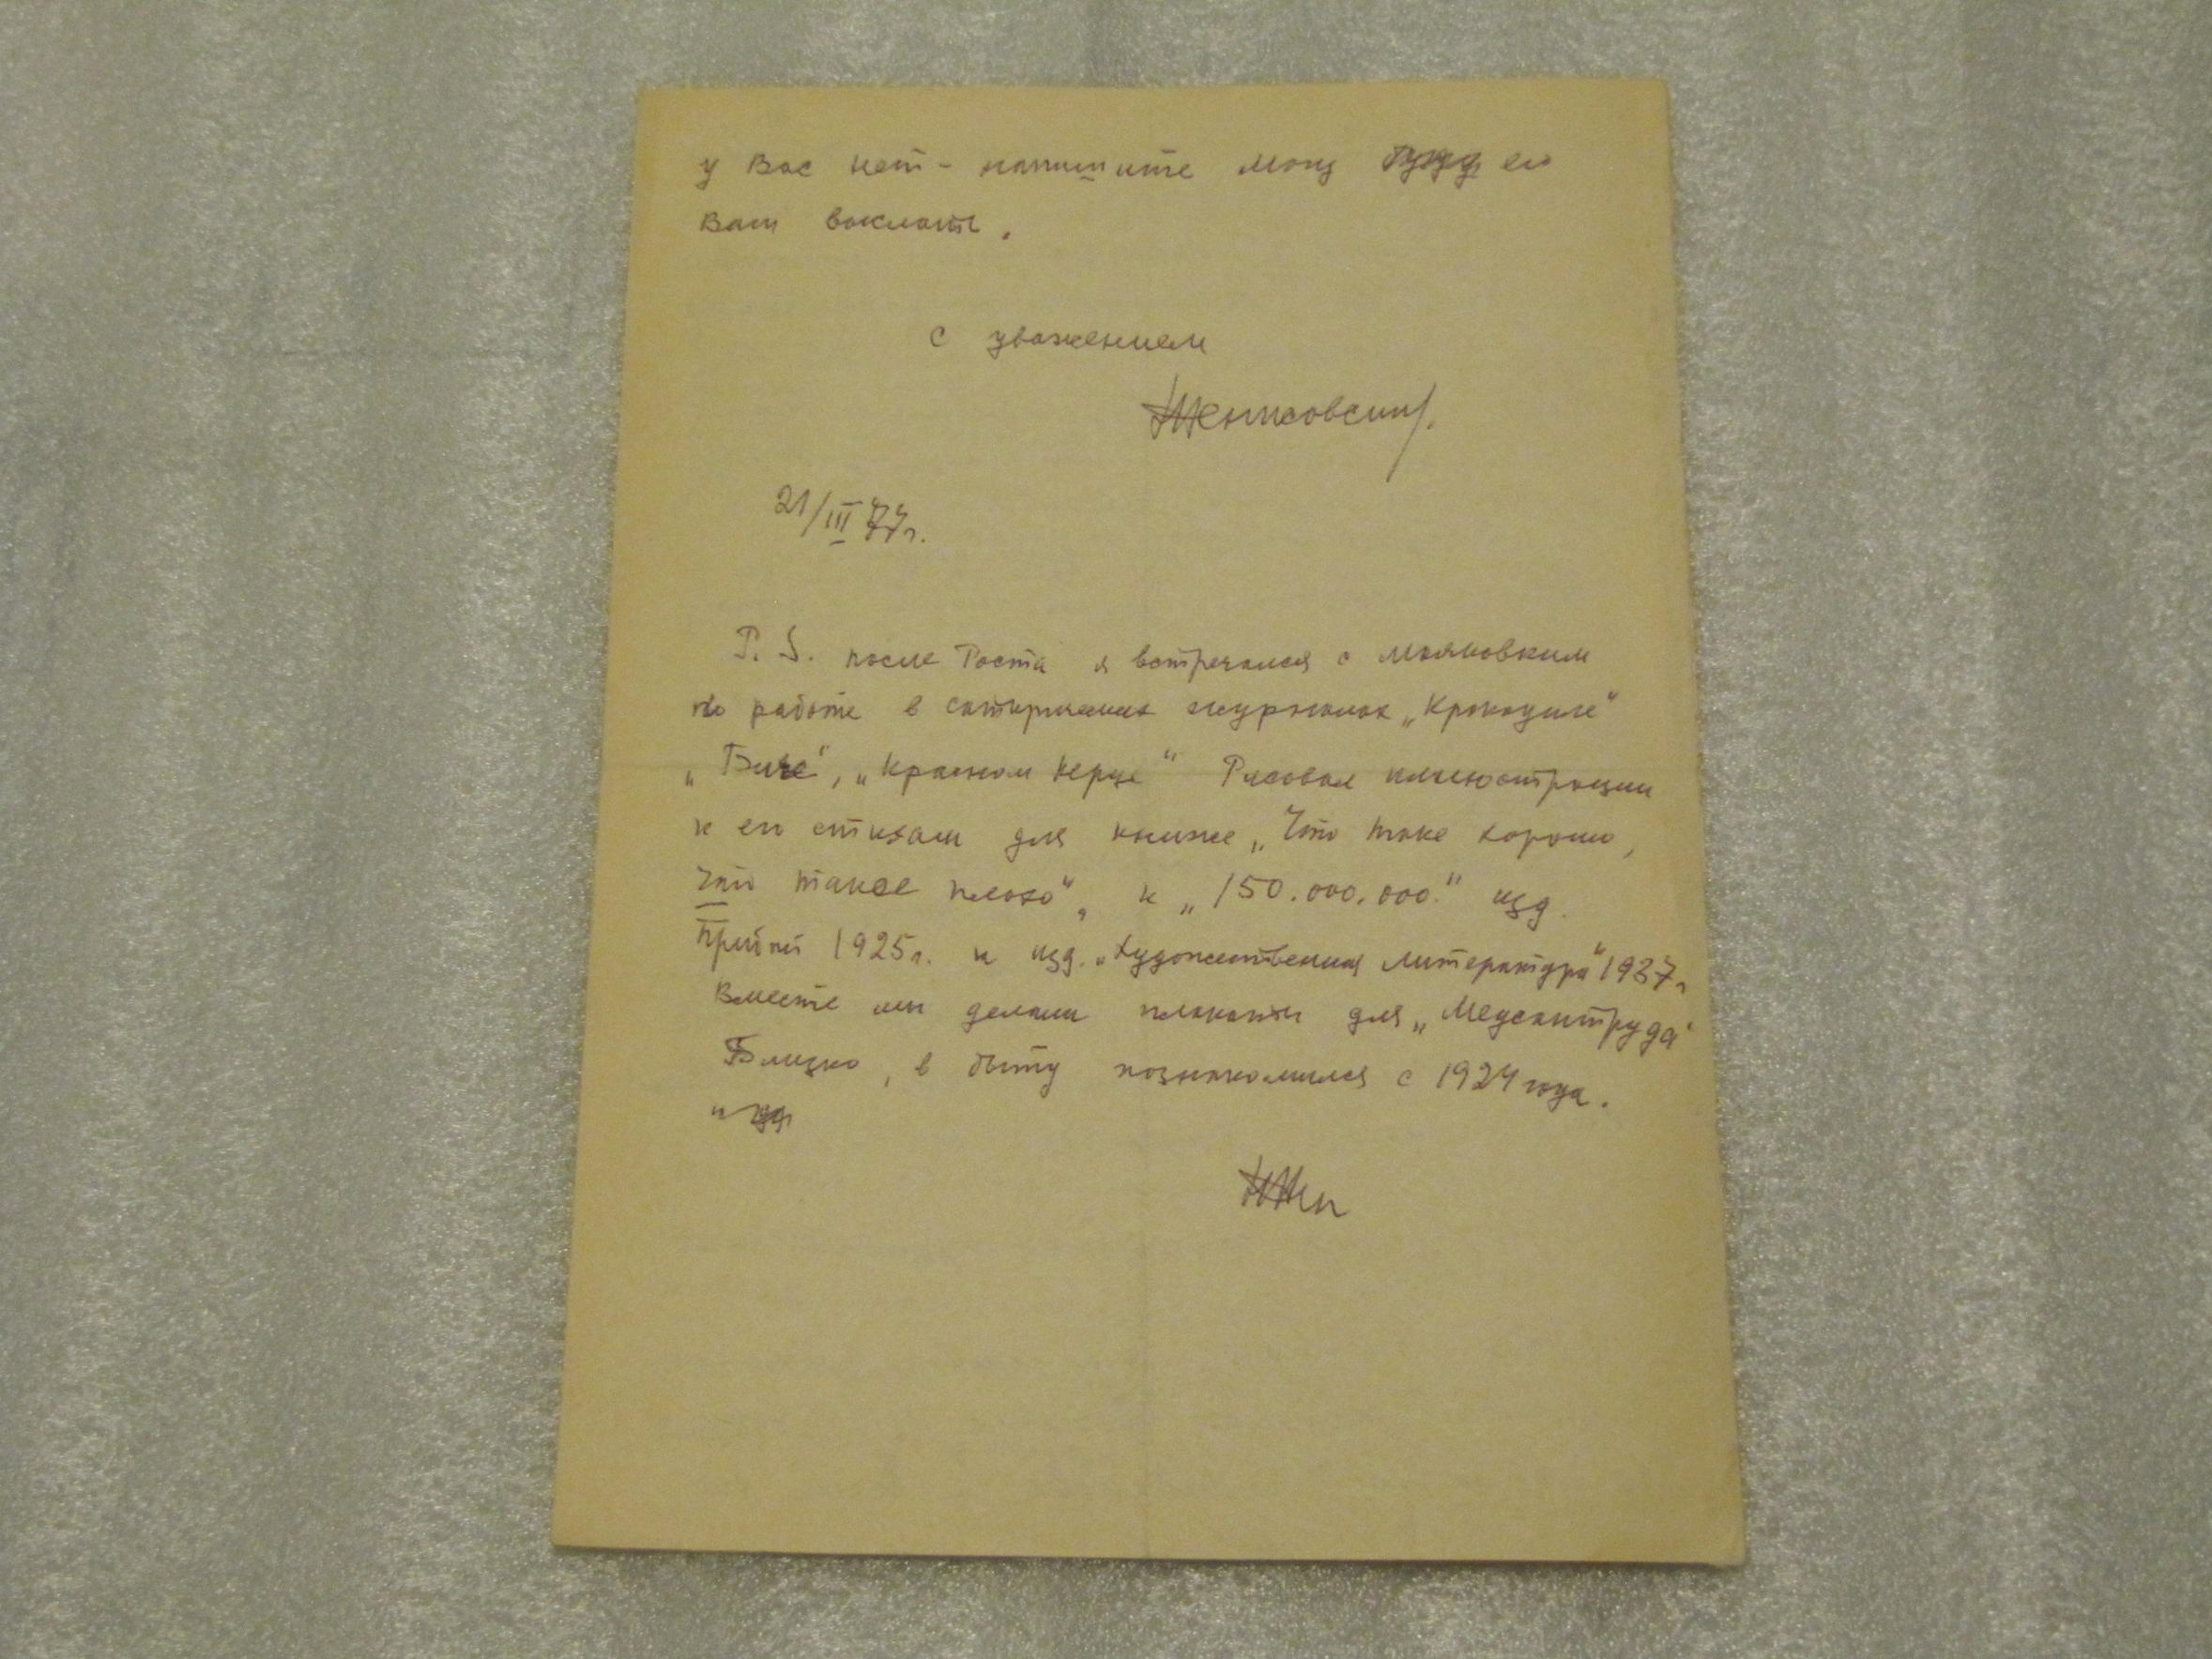 у Вас нет - напишите могу его
Вам выслать.
с уважением
Денисовский.
21/III 77г.
P.S. после Роста я встречался с Маяковким
по работе в сатирических журналах „Крокодиле"
„Биче", „Красном перце" Рисовал иллюстрации
к его стихам для книжке „Что таке хорошо,
что такое плохо", к „150.000.000." изд.
Прибой 1925г. и изд. „Художественная литература" 1937г
Вместе мы делали плакаты для „Медсантруда"
Близко, в быту познакомился с 1924 года.
и